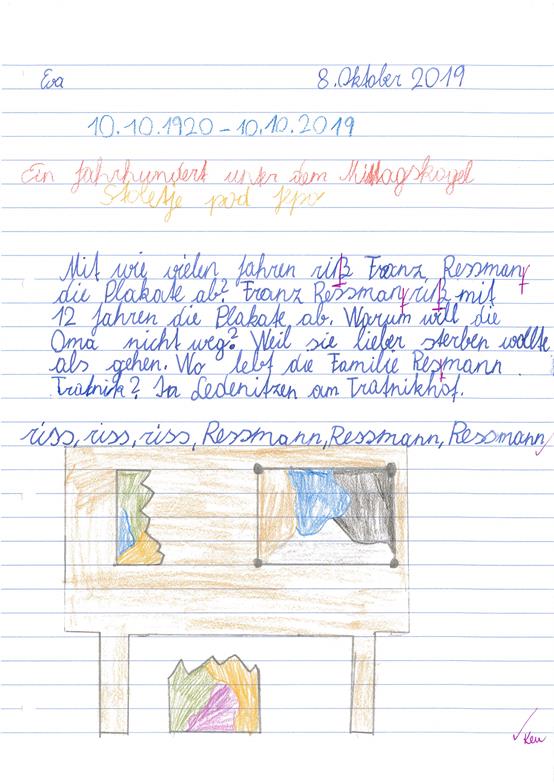 Eva 8. Oktober 2019
10.10.1920 - 10.10.2019
Ein Jahrhundert unter dem Mittagskogel
Stoletje pod Jepo
Mit wie vielen Jahren riß Franz Ressmann
die Plakate ab? Franz Ressmann riß mit
12 Jahren die Plakate ab. Warum will die
Oma nicht weg? Weil sie lieber sterben wollte
als gehen. Wo lebt die Familie Resmann
Tratnik? In Ledenitzen am Tratnikhof.
riss, riss, riss, Ressmann, Ressmann, Ressmann